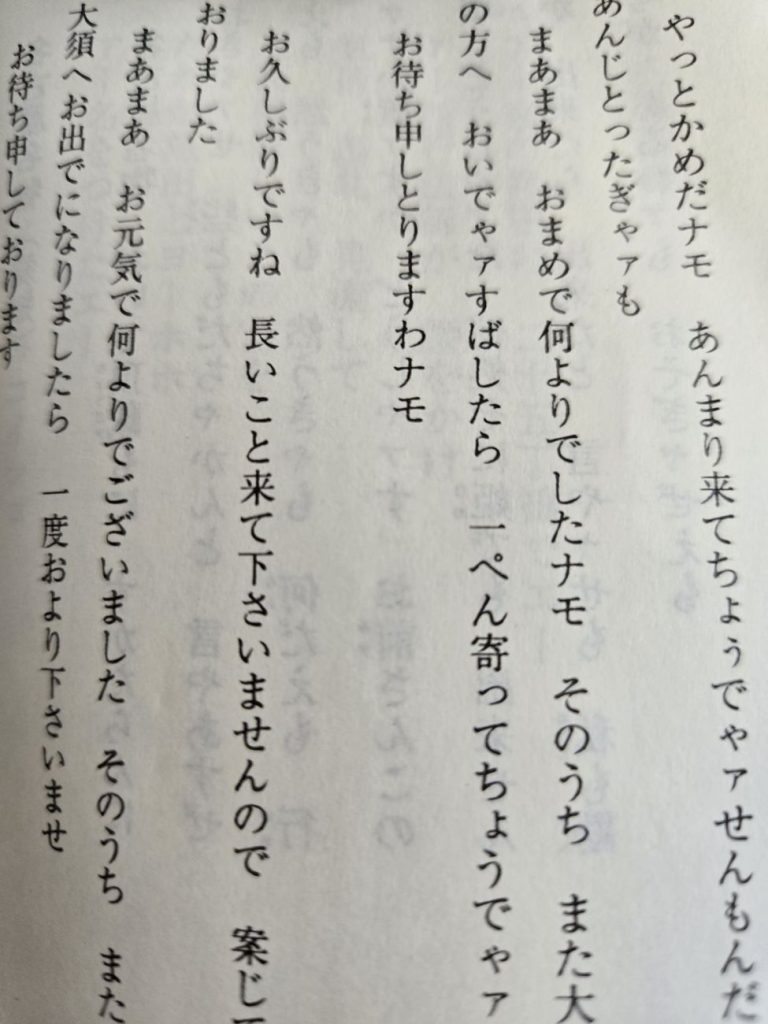 やっとかめだナモ　あんまり来てちょうでャァせんもんだ
あんじとったぎャァも
まあまあ　おまめで何よりでしたナモ　そのうち　また大
の方へ　おいでャァすばしたら　一ぺん寄ってちょうでャァ
お待ち申しとりますわナモ
お久しぶりですね　長いこと来て下さいませんので　案じて
おりました
まあまあ　お元気で何よりでございました　そのうち　また
大須へお出でになりましたら　一度およりくださいませ
お待ち申しております